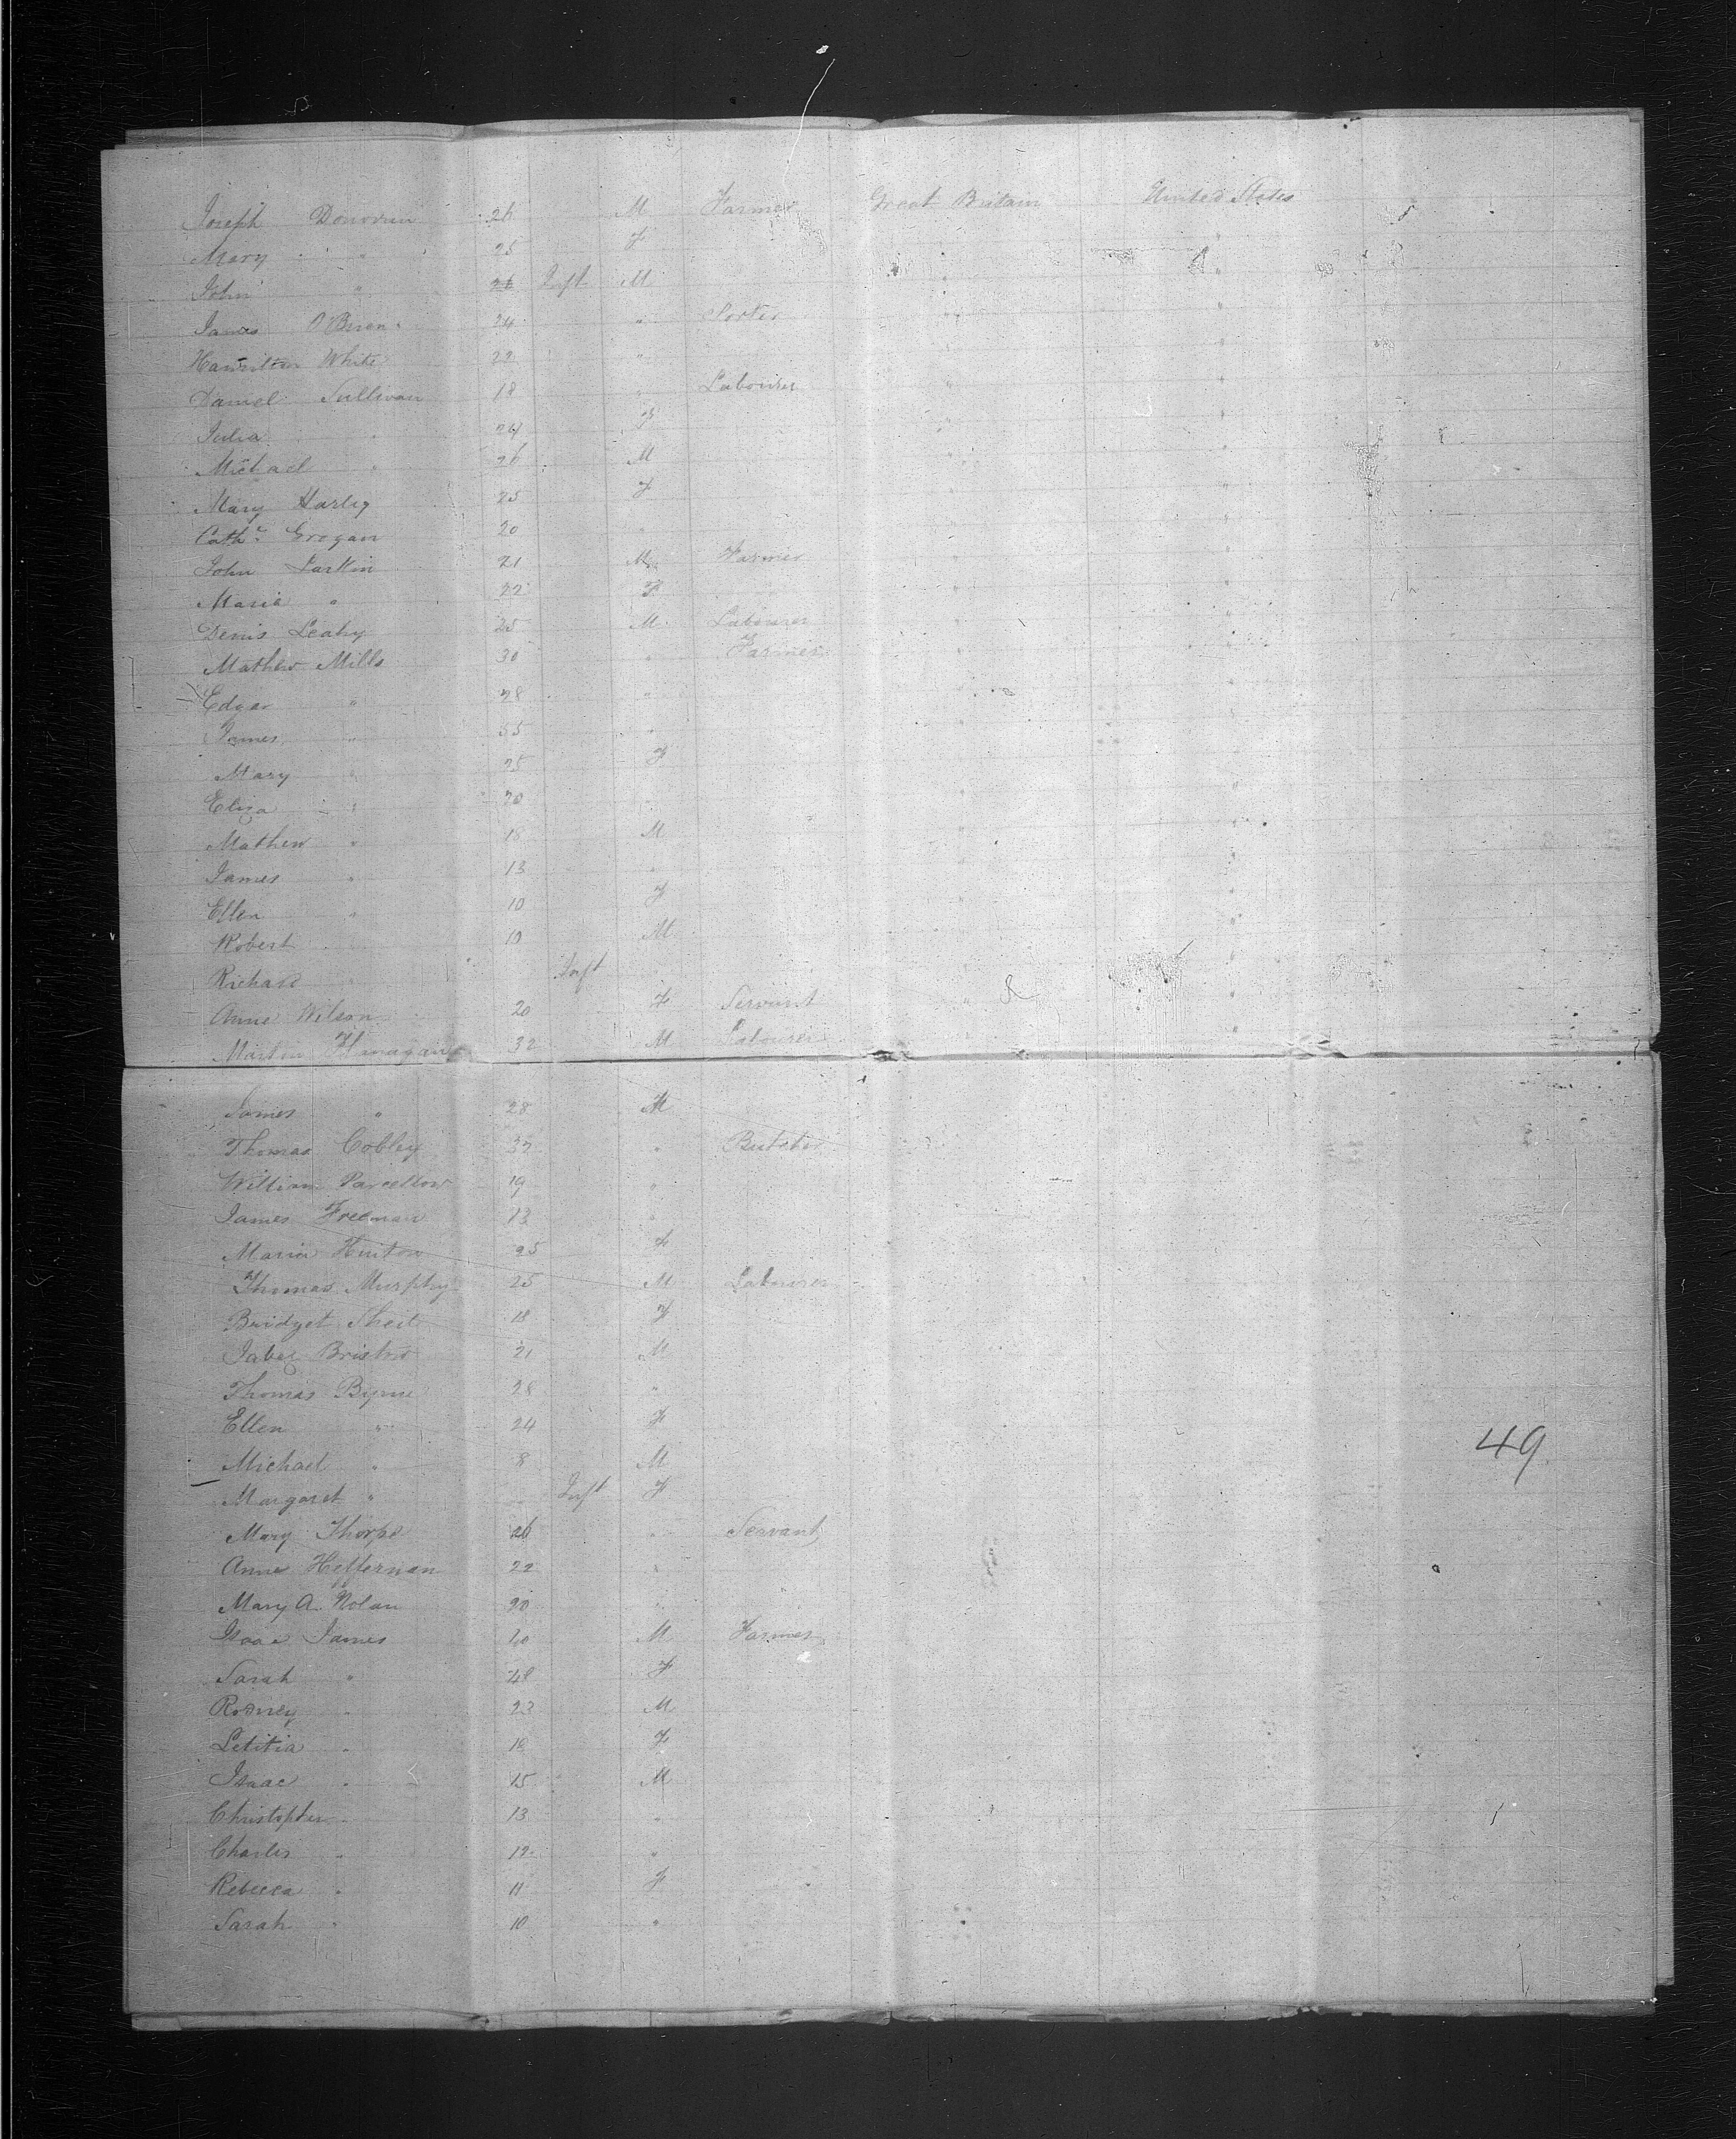 Joseph Donovan 26 M Farmer Great Britain United States
Mary " 25 F " "
John " 26 Inft M " "
James O'Brien 24 " Porter " "
Hamilton White 22 " " "
Daniel Sullivan 18 " Labourer " "
Julia " 24 F " "
Michael " 26 M " "
Mary Harley 25 F " "
Cathe Grogan 20 " " "
John Larkin 21 M Farmer " "
Maria " 22 F " "
Denis Leahy 25 M Labourer " "
Mathew Mills 30 " Farmer " "
Edgar " 28 " " "
James " 35 " "
Mary " 25 F
Eliza " 20 " " "
Mathew " 18 M " "
James " 13 " "
Ellen " 10 F " "
Robert " 10 M "
Richard " Inft " " "
Anne Wilson 20 F Servant " "
Martin Flanagan 32 M Labourer "
James " 28 M
Thomas Cobley 32 " Butcher
William Parcellow 19 "
James Freeman 13 "
Maria Hinton 25 F
Thomas Murphy 25 M Labourer
Bridget Sheil 18 F
Jabez Bristow 21 M
Thomas Byrne 28 "
Ellen " 24 F
Michael " 8 M
49
Margaret " Inft F
Mary Thorpe 26 " Servant
Anne Heffernan 22 "
Mary A. Nolan 20 " "
Isaac James M Farmer
Sarah " 48 F
Rodney " 23 M
Letitia " 18 F
Isaac " 15 M
Christopher " 13 "
Charles " 12 "
Rebecca " 11 F
Sarah " 10 "